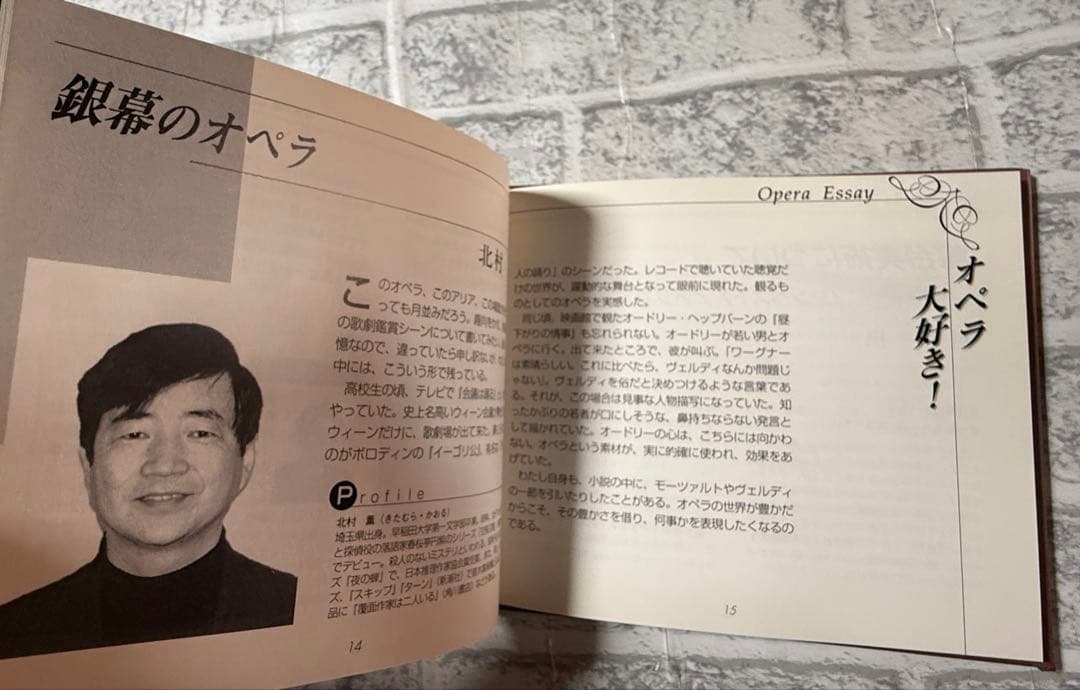 銀幕のオペラ
北村
このオペラ、このアリア、この
っても月並みだろう。
の歌劇鑑賞シーンについて書いてみ
憶なので、違っていたら申し訳ない
中には、こういう形で残っている。
高校生の頃、テレビで「会議は踊る」
やっていた。史上名高いウィーン会議
ウィーンだけに、歌劇場が出て来た。
のがボロディンの『イーゴリ公』、
Profile
北村 薫(きたむら・かおる)
埼玉県出身。早稲田大学第一文学部卒業。
と探偵役の落語家春桜亭円紫のシリーズ
でデビュー。殺人のないミステリといわれる、
ズ『夜の蝉』で、日本推理作家協会賞
ズ、『スキップ』『ターン』(新潮社)
品に『覆面作家は二人いる』(角川書店)などがある。
14
Opera Essay
オペラ
大好き!
人の踊り」のシーンだった。レコードで聴いていた聴覚だ
けの世界が、躍動的な舞台となって眼前に現れた。観るも
のとしてのオペラを実感した。
同じ頃、映画館で観たオードリー・ヘップバーンの『昼
下がりの情事』も忘れられない。オードリーが若い男とオ
ペラに行く。出て来たところで、彼が叫ぶ。「ワーグナー
は素晴らしい。これに比べたら、ヴェルディなんか問題じ
ゃない!」。ヴェルディを俗だと決めつけるような言葉であ
る。それが、この場合は見事な人物描写になっていた。知
ったかぶりの若者が口にしそうな、鼻持ちならない発言と
して描かれていた。オードリーの心は、こちらには向かわ
ない。オペラという素材が、実に的確に使われ、効果をあ
げていた。
わたし自身も、小説の中に、モーツァルトやヴェルディ
の一節を引いたりしたことがある。オペラの世界が豊かだ
からこそ、その豊かさを借り、何事かを表現したくなるの
である。
15